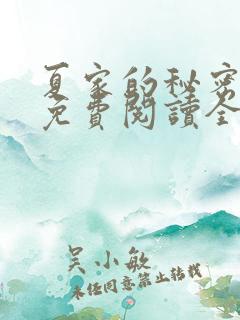 夏家的秘密
免費閱讀全
吴小敏
未经同意禁止转载